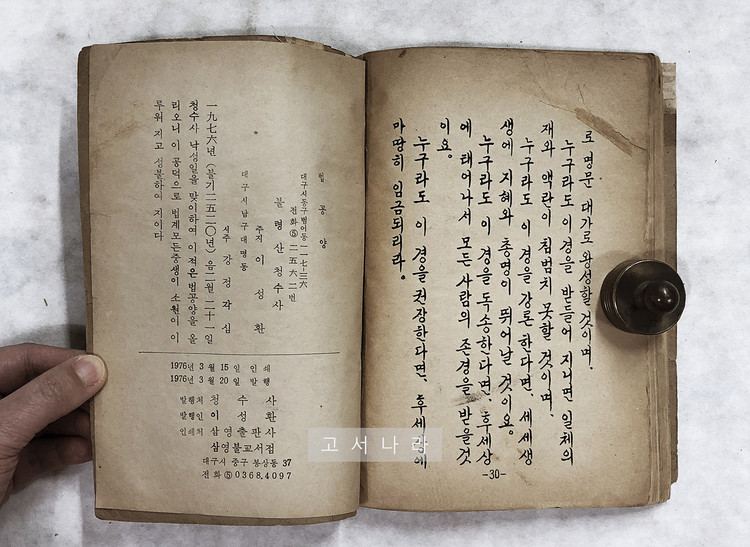 로 명문 대가로 왕성할 것이며.
누구라도 이경을 받들어 지니면 일체의
재와 액란이 침범치 못할 것이며,
누구라도 이 경을 강론 한다면, 세세생
생에 지혜와 총명이 뛰어날 것이요.
누구라도 이 경을 독송하다면, 후세상
에 태어나서 모든 사람의 존경을 받을것
이요.
누구라도 이 경을 권장한다면, 후세에
마땅히 임금되리라.
-30-
법 공 양
대구시동구범어동 一一七─三六
전화⑤ 二五六二번
불령산청수사
주지 이 성 환
대구시남구대명동
시주 강 정 각 심
一九七六년(불기二五二○년)음二월二十一일
청수사 낙성일을 맞이하여 이 적은 법공양을 올
리오니 이 공덕으로 법계모든중생이 소원이 이
루워 지고 성불하여 지이다
1976년 3월 15일 인쇄
1976년 3월 20일 발행
발행처 청 수 사
발행인 이 성 환
인쇄처 삼영출판사
삼영불교서점
대구시 중구 봉산동 37
전화⑤0368.4097
고서나라